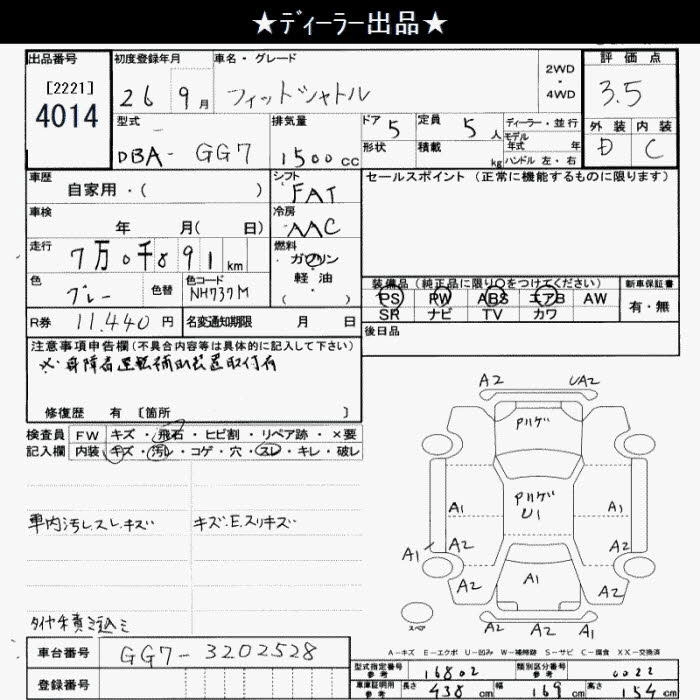 ★ディーラー出品★
出品番号
[2221]
4014
初度登録年月
26 9月
車名・グレード
フィットシャトル
2WD
・
4WD
評価点
3.5
外装 内装
D C
型式
DBA- GG7
排気量
1500cc
ドア 5
形状
定員 5人
積載 kg
ディーラー・並行
モデル年式 年
ハンドル 左・右
車歴
自家用・( )
シフト
FAT
セールスポイント (正常に機能するものに限ります)
車検
年 月( 日)
冷房
AAC
走行
7万0千891km
燃料
ガソリン
軽油
( )
色
グレー
色替
色コード
NH737M
装備品(純正品に限り○をつけてください)
PS PW ABS エアB AW
SR ナビ TV カワ
新車保証書
有・無
R券 11,440円
名変通知期限 月 日
後日品
注意事項申告欄(不具合内容等は具体的に記入して下さい)
※身障者運転補助装置取付有
修復歴 有 [箇所 ]
検査員 FW キズ・飛石・ヒビ割・リペア跡・×要
記入欄 内装 キズ・汚レ・コゲ・穴・スレ・キレ・破レ
車内汚レスレキズ
キズ.E.スリキズ
タイヤ積ミ込ミ
A2 UA2
Pハゲ
Pハゲ
U1
A1 A1
A1 A2 A2
A2 A1 A2
A2 A2 A2
スペア
A-キズ E-エクボ U-凹み W-補修跡 S-サビ C-腐食 XX-交換済
車台番号 GG7-3202528
登録番号
型式指定番号 参考 16802
類別区分番号 参考 0022
車庫証明用 参考 長さ 438cm 幅 169cm 高さ 154cm